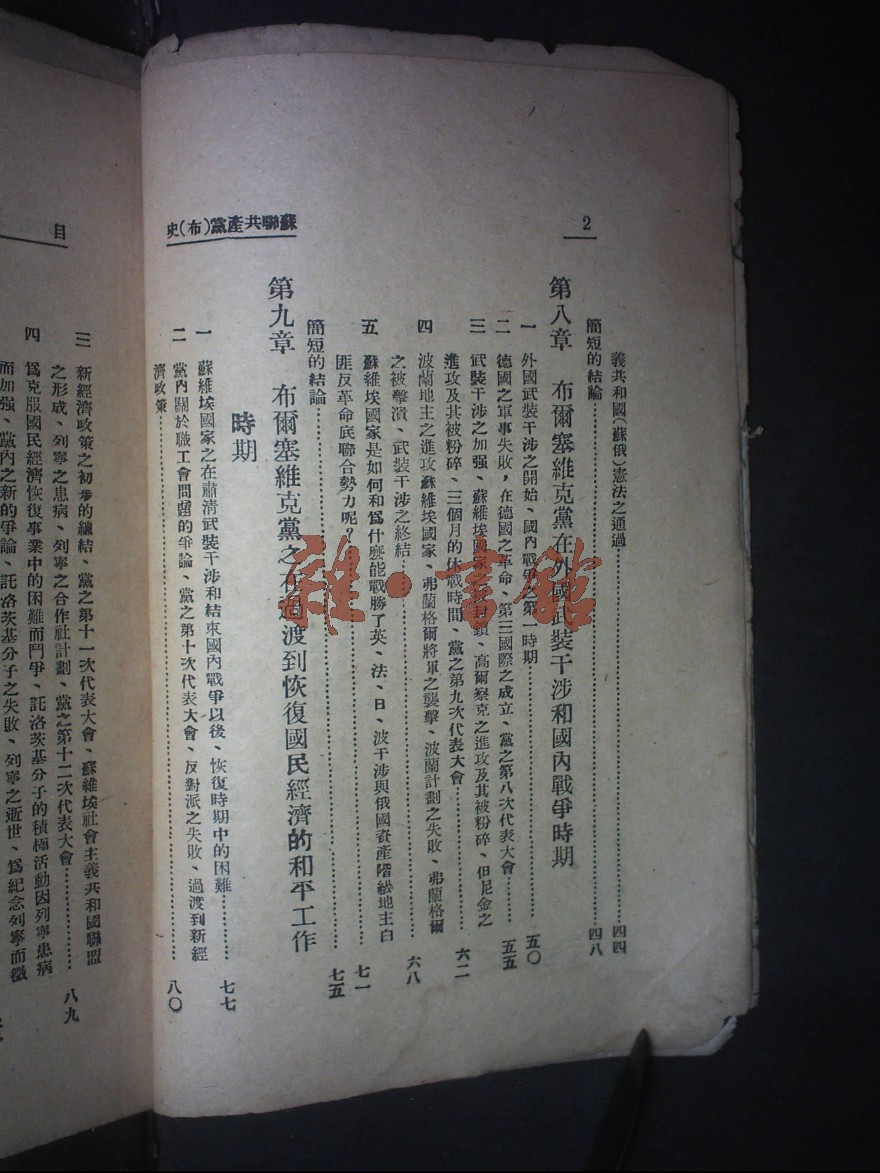 2
蘇聯共產黨(布)史
義共和國(蘇俄)憲法之通過……四四
簡短的結論……四八
第八章 布爾塞維克黨在外國武裝干涉和國內戰爭時期
一 外國武裝干涉之開始、國內戰爭之第一時期……五〇
二 德國之軍事失敗，在德國之革命、第三國際之成立、黨之第八次代表大會……五五
三 武裝干涉之加强、蘇維埃國家之被封鎖、高爾察克之進攻及其被粉碎、但尼金之
進攻及其被粉碎、三個月的休戰時間、黨之第九次代表大會……六二
四 波蘭地主之進攻蘇維埃國家、弗蘭格爾將軍之襲擊、波蘭計劃之失敗、弗蘭格爾
之被擊潰、武裝干涉之終結……六八
五 蘇維埃國家是如何和爲什麽能戰勝了英、法、日、波干涉與俄國資產階級地主白
匪反革命底聯合勢力呢？……七一
簡短的結論……七五
第九章 布爾塞維克黨之在過渡到恢復國民經濟的和平工作
時期
一 蘇維埃國家之在肅清武裝干涉和結束國內戰爭以後、恢復時期中的困難……七七
二 黨內關於職工會問題的爭論、黨之第十次代表大會、反對派之失敗、過渡到新經
濟政策……八〇
目
三 新經濟政策之初步的總結、黨之第十一次代表大會、蘇維埃社會主義共和國聯盟
之形成、列寧之患病、列寧之合作社計劃、黨之第十二次代表大會……八九
四 爲克服國民經濟恢復事業中的困難而鬥爭、託洛茨基分子的積極活動因列寧患病
而加强、黨內之新的爭論、託洛茨基分子之失敗、列寧之逝世、爲紀念列寧而徵
雜·書館